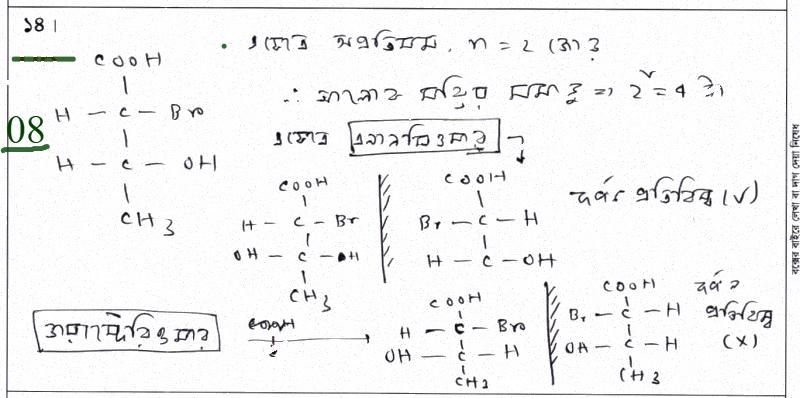 ১৪।
COOH
H — C — Br
H — C — OH
CH3
08
এক্ষেত্রে অপ্রতিসম, n = 2
∴ আলোক সক্রিয় সমাণু = 2² = 4 টি।
এক্ষেত্রে এনানসিওমার
COOH
H — C — Br
OH — C — H
CH3
COOH
Br — C — H
H — C — OH
দর্পন প্রতিবিম্ব (√)
ডায়াস্টেরিওমার
COOH
COOH
H — C — Br
OH — C — H
CH3
COOH
Br — C — H
OH — C — H
CH3
দর্পন
প্রতিবিম্ব
(X)
বক্সের বাইরে লেখা বা দাগ দেয়া নিষেধ